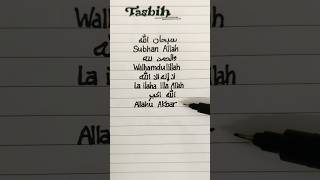 Tasbih
سبحان الله
Subhan Allah
والحمد لله
Walhamdulillah
لا إله إلا الله
La ilaha illa Allah
الله اكبر
Allahu Akbar